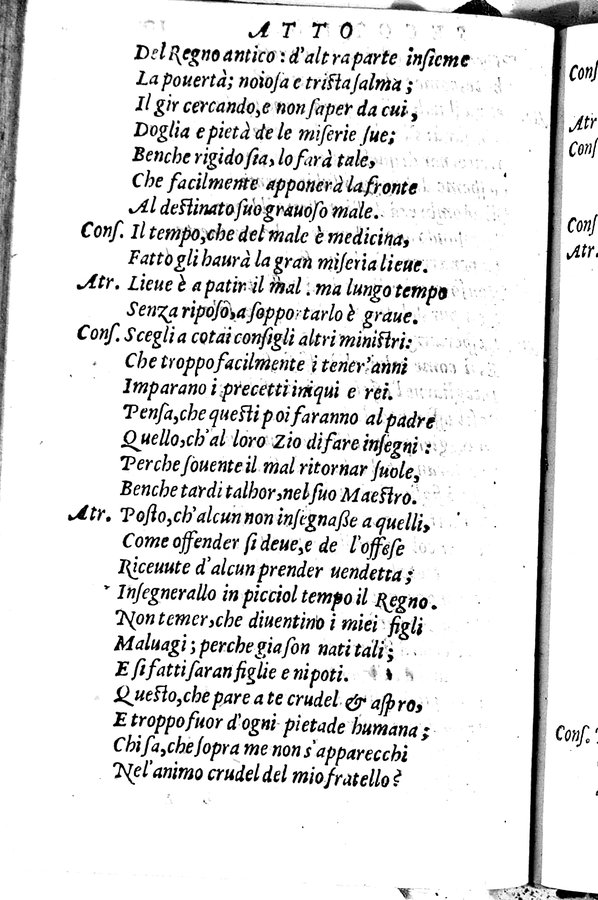 ATTO
Del Regno antico: d'altra parte inſieme
La pouertà; noioſa e triſta ſalma;
Il gir cercando, e non ſaper da cui,
Doglia e pietà de le miſerie ſue;
Benche rigido ſia, lo farà tale,
Che facilmente apponerà la fronte
Al deſtinato ſuo grauoſo male.
Conſ. Il tempo, che del male è medicina,
Fatto gli haurà la gran miſeria lieue.
Atr. Lieue è a patir il mal: ma lungo tempo
Senza ripoſo, a ſopportarlo è graue.
Conſ. Scegli a cotai conſigli altri miniſtri:
Che troppo facilmente i tener'anni
Imparano i precetti iniqui e rei.
Penſa, che queſti poi faranno al padre
Quello, ch'al loro Zio di fare inſegni:
Perche ſouente il mal ritornar ſuole,
Benche tardi talhor, nel ſuo Maeſtro.
Atr. Poſto, ch'alcun non inſegnaße a quelli,
Come offender ſi deue, e de l'offeſe
Riceuute d'alcun prender uendetta;
Inſegnerallo in picciol tempo il Regno.
Non temer, che diuentino i miei figli
Maluagi; perche gia ſon nati tali;
E ſi fatti ſaran figlie e nipoti.
Queſto, che pare a te crudel & aſpro,
E troppo fuor d'ogni pietade humana;
Chi ſa, che ſopra me non s'apparecchi
Nel'animo crudel del mio fratello?
Conſ
Atr
Conſ
Conſ
Atr.
Conſ.